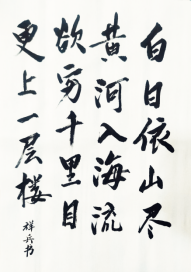 白日依山尽
黄河入海流
欲穷千里目
更上一层楼
祥兵书